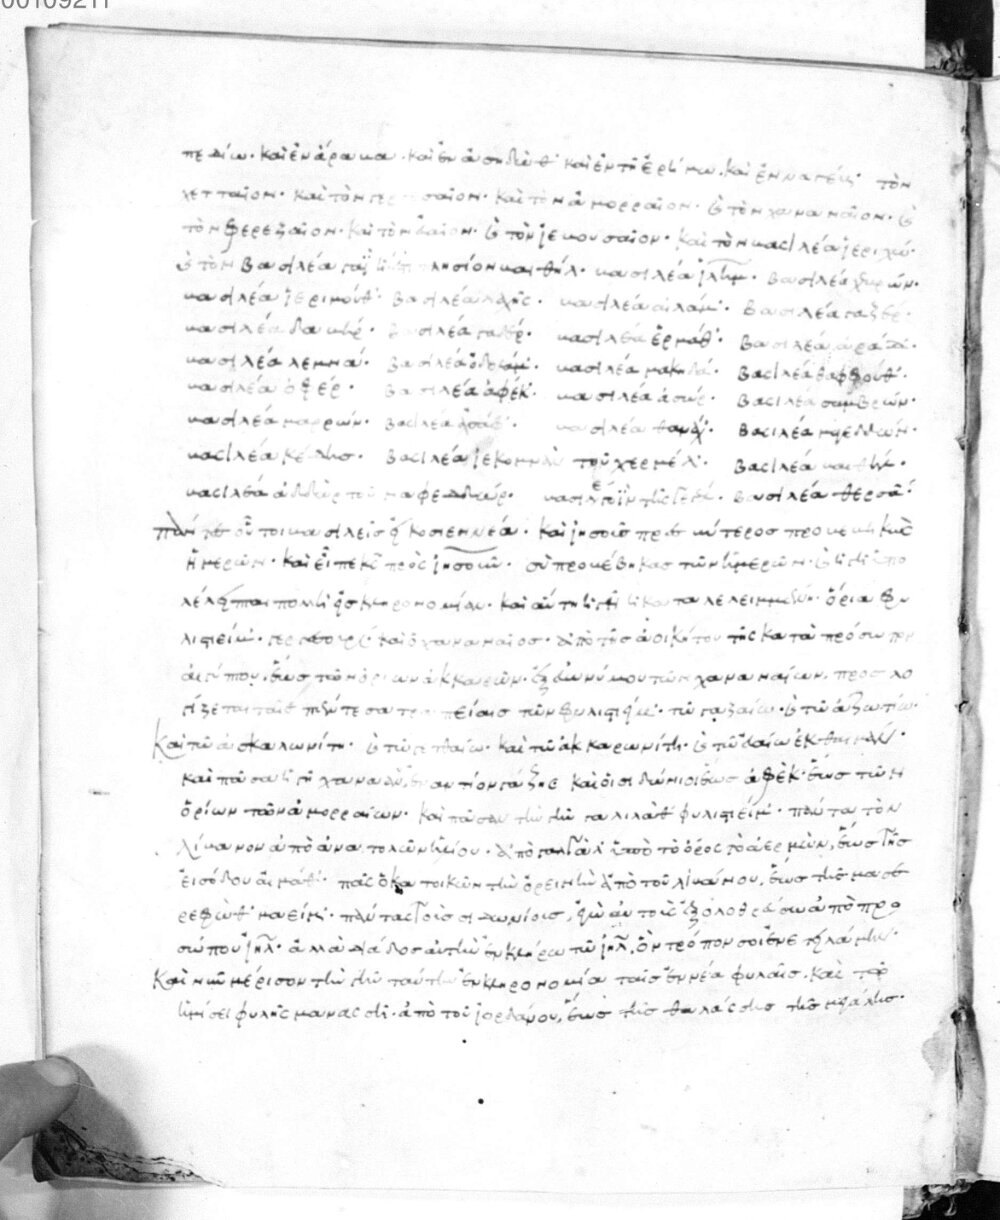 00109211
πεδίω· καὶ ἐν ἄραβα· καὶ ἐν ἀσηδὼθ· καὶ ἐν τῆ ἐρήμω· καὶ ἐν ναγέβ· τὸν
χετταῖον· καὶ τὸν σαῖον· καὶ τὸν ἀμορραῖον· καὶ τὸν χαναναῖον· καὶ
τὸν φερεζαῖον· καὶ τὸν εὐαῖον· καὶ τὸν ἰεβουσαῖον· καὶ τὸν βασιλέα ἱεριχώ·
καὶ τὸν βασιλέα πλησίον βαιθήλ· βασιλέα ἰλημ· βασιλέα χεβρών·
βασιλέα ἱεριμούθ· βασιλέα λαχῆς· βασιλέα αἰλάμ· βασιλέα γαζέρ·
βασιλέα δαβήρ· βασιλέα γαδέρ· βασιλέα ἑρμάθ· βασιλέα
βασιλέα λεμνά· βασιλέα ὀδολάμ· βασιλέα μακηδά· βασιλέα
βασιλέα ὀφέρ· βασιλέα ἀφέκ· βασιλέα ἀσώρ· βασιλέα συμβρών·
βασιλέα μαρρών· βασιλέα βασιλέα θανάχ· βασιλέα μαγεδδών·
βασιλέα κέδης· βασιλέα ἰεκομνὰν τοῦ χερμέλ· βασιλέα
βασιλέα ἀδδὼρ τοῦ ναφεδδώρ· βασιλέα γωεὶν τῆς γελγέλ· βασιλέα θερσά·
πάντες οὗτοι βασιλεῖς εἰκοσιεννέα· καὶ ἰησοῦς πρεσβύτερος προβεβηκὼς
ἡμερῶν· καὶ εἶπε κς πρὸς ἰησοῦν· σὺ προβέβηκας τῶν ἡμερῶν· καὶ ἡ γῆ ὑπο
λέλειπται πολλὴ εἰς κληρονομίαν· καὶ αὕτη ἡ γῆ ἡ καταλελειμμένη· ὅρια φυ
λιστιείμ· καὶ ὁ χαναναῖος· ἀπὸ τῆς ἀοικήτου τῆς κατὰ πρόσωπον
αἰγύπτου, ἕως τῶν ὁρίων ἀκκαρών· ἐξ εὐωνύμου τῶν χαναναίων, προσλο
γίζεται ταῖς πέντε σατραπείαις τῶν φυλιστιείμ· τῶ γαζαίω· καὶ τῶ ἀζωτίω·
καὶ τῶ ἀσκαλωνίτη· καὶ τῶ γετθαίω· καὶ τῶ ἀκκαρωνίτη· καὶ τῶ εὐαίω ἐκ θαιμάν·
καὶ πᾶσα ἡ γῆ χαναάν, ἐναντίον γάζης καὶ οἱ σιδώνιοι ἕως ἀφὲκ· ἕως τῶν
ὁρίων τῶν ἀμορραίων· καὶ πᾶσαν τὴν γῆν γαλιλὰθ φυλιστιείμ· πάντα τὸν
λίβανον ἀπὸ ἀνατολῶν ἡλίου· ἀπὸ γαλγὰλ ὑπὸ τὸ ὄρος τὸ ἀερμών, ἕως τῆς
εἰσόδου αἰμάθ· πᾶς ὁ κατοικῶν τὴν ὀρεινὴν ἀπὸ τοῦ λιβάνου, ἕως τῆς μασε
ρεφὼθ μαείμ· πάντας τοὺς σιδωνίους, ἐγὼ αὐτοὺς ἐξολοθρεύσω ἀπὸ προ
σώπου ἰηλ· ἀλλὰ διάδος αὐτὴν ἐν κλήρω τῶ ἰηλ, ὃν τρόπον σοὶ ἐνετειλάμην·
καὶ νῦν μέρισον τὴν γῆν ταύτην ἐν κληρονομία ταῖς ἐννέα φυλαῖς· καὶ τῶ
ἡμίσει φυλῆς μανασσῆ· ἀπὸ τοῦ ἰορδάνου, ἕως τῆς θαλάσσης τῆς μεγάλης·